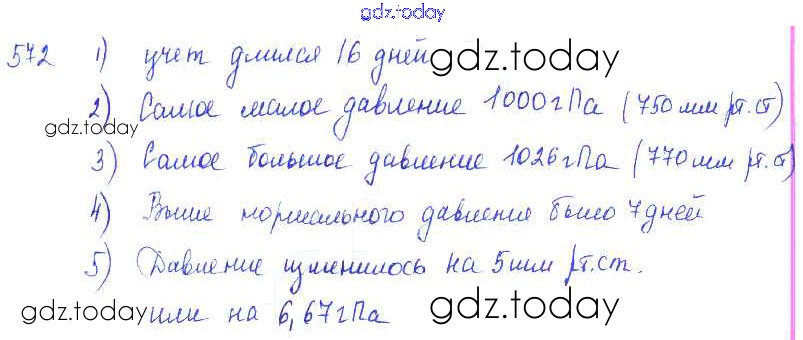 gdz.today
572 1) учет длился 16 дней gdz.today
2) Самое малое давление 1000 гПа (750 мм рт.ст)
gdz.today
3) Самое большое давление 1026 гПа (770 мм рт.ст)
4) Выше нормального давление было 7 дней
5) Давление изменилось на 5 мм рт.ст.
gdz.today или на 6,67 гПа gdz.today